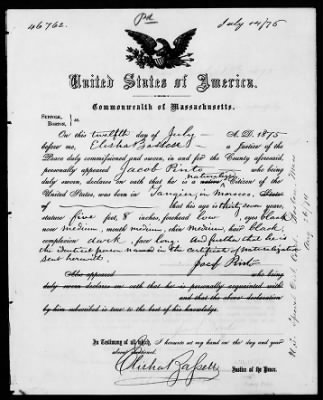 46762. Pd July 14/75
United States of America.
Commonwealth of Massachusetts.
SUFFOLK, } ss.
BOSTON,
On this twelfth day of July A. D. 1875
before me, Elisha Bassett a Justice of the
Peace duly commissioned and sworn, in and for the County aforesaid,
personally appeared Jacob Pinto who being
duly sworn, declares on oath that he is a naturalized Citizen of the
United States, was born in Tangier, in Morocco,
of that his age is thirty seven years,
stature five feet, 8 inches, forehead low, eyes black
nose medium, mouth medium, chin medium, hair black,
complexion dark, face long. And further that he is
the identical person named in the certificate of naturalization
sent herewith.
Jacob Pinto
Also appeared who being
duly sworn declares on oath that he is personally acquainted with
and that the above declaration
by him subscribed is true to the best of his knowledge.
In Testimony of which, I hereunto set my hand on the day and year
above mentioned.
Elisha Bassett Justice of the Peace.